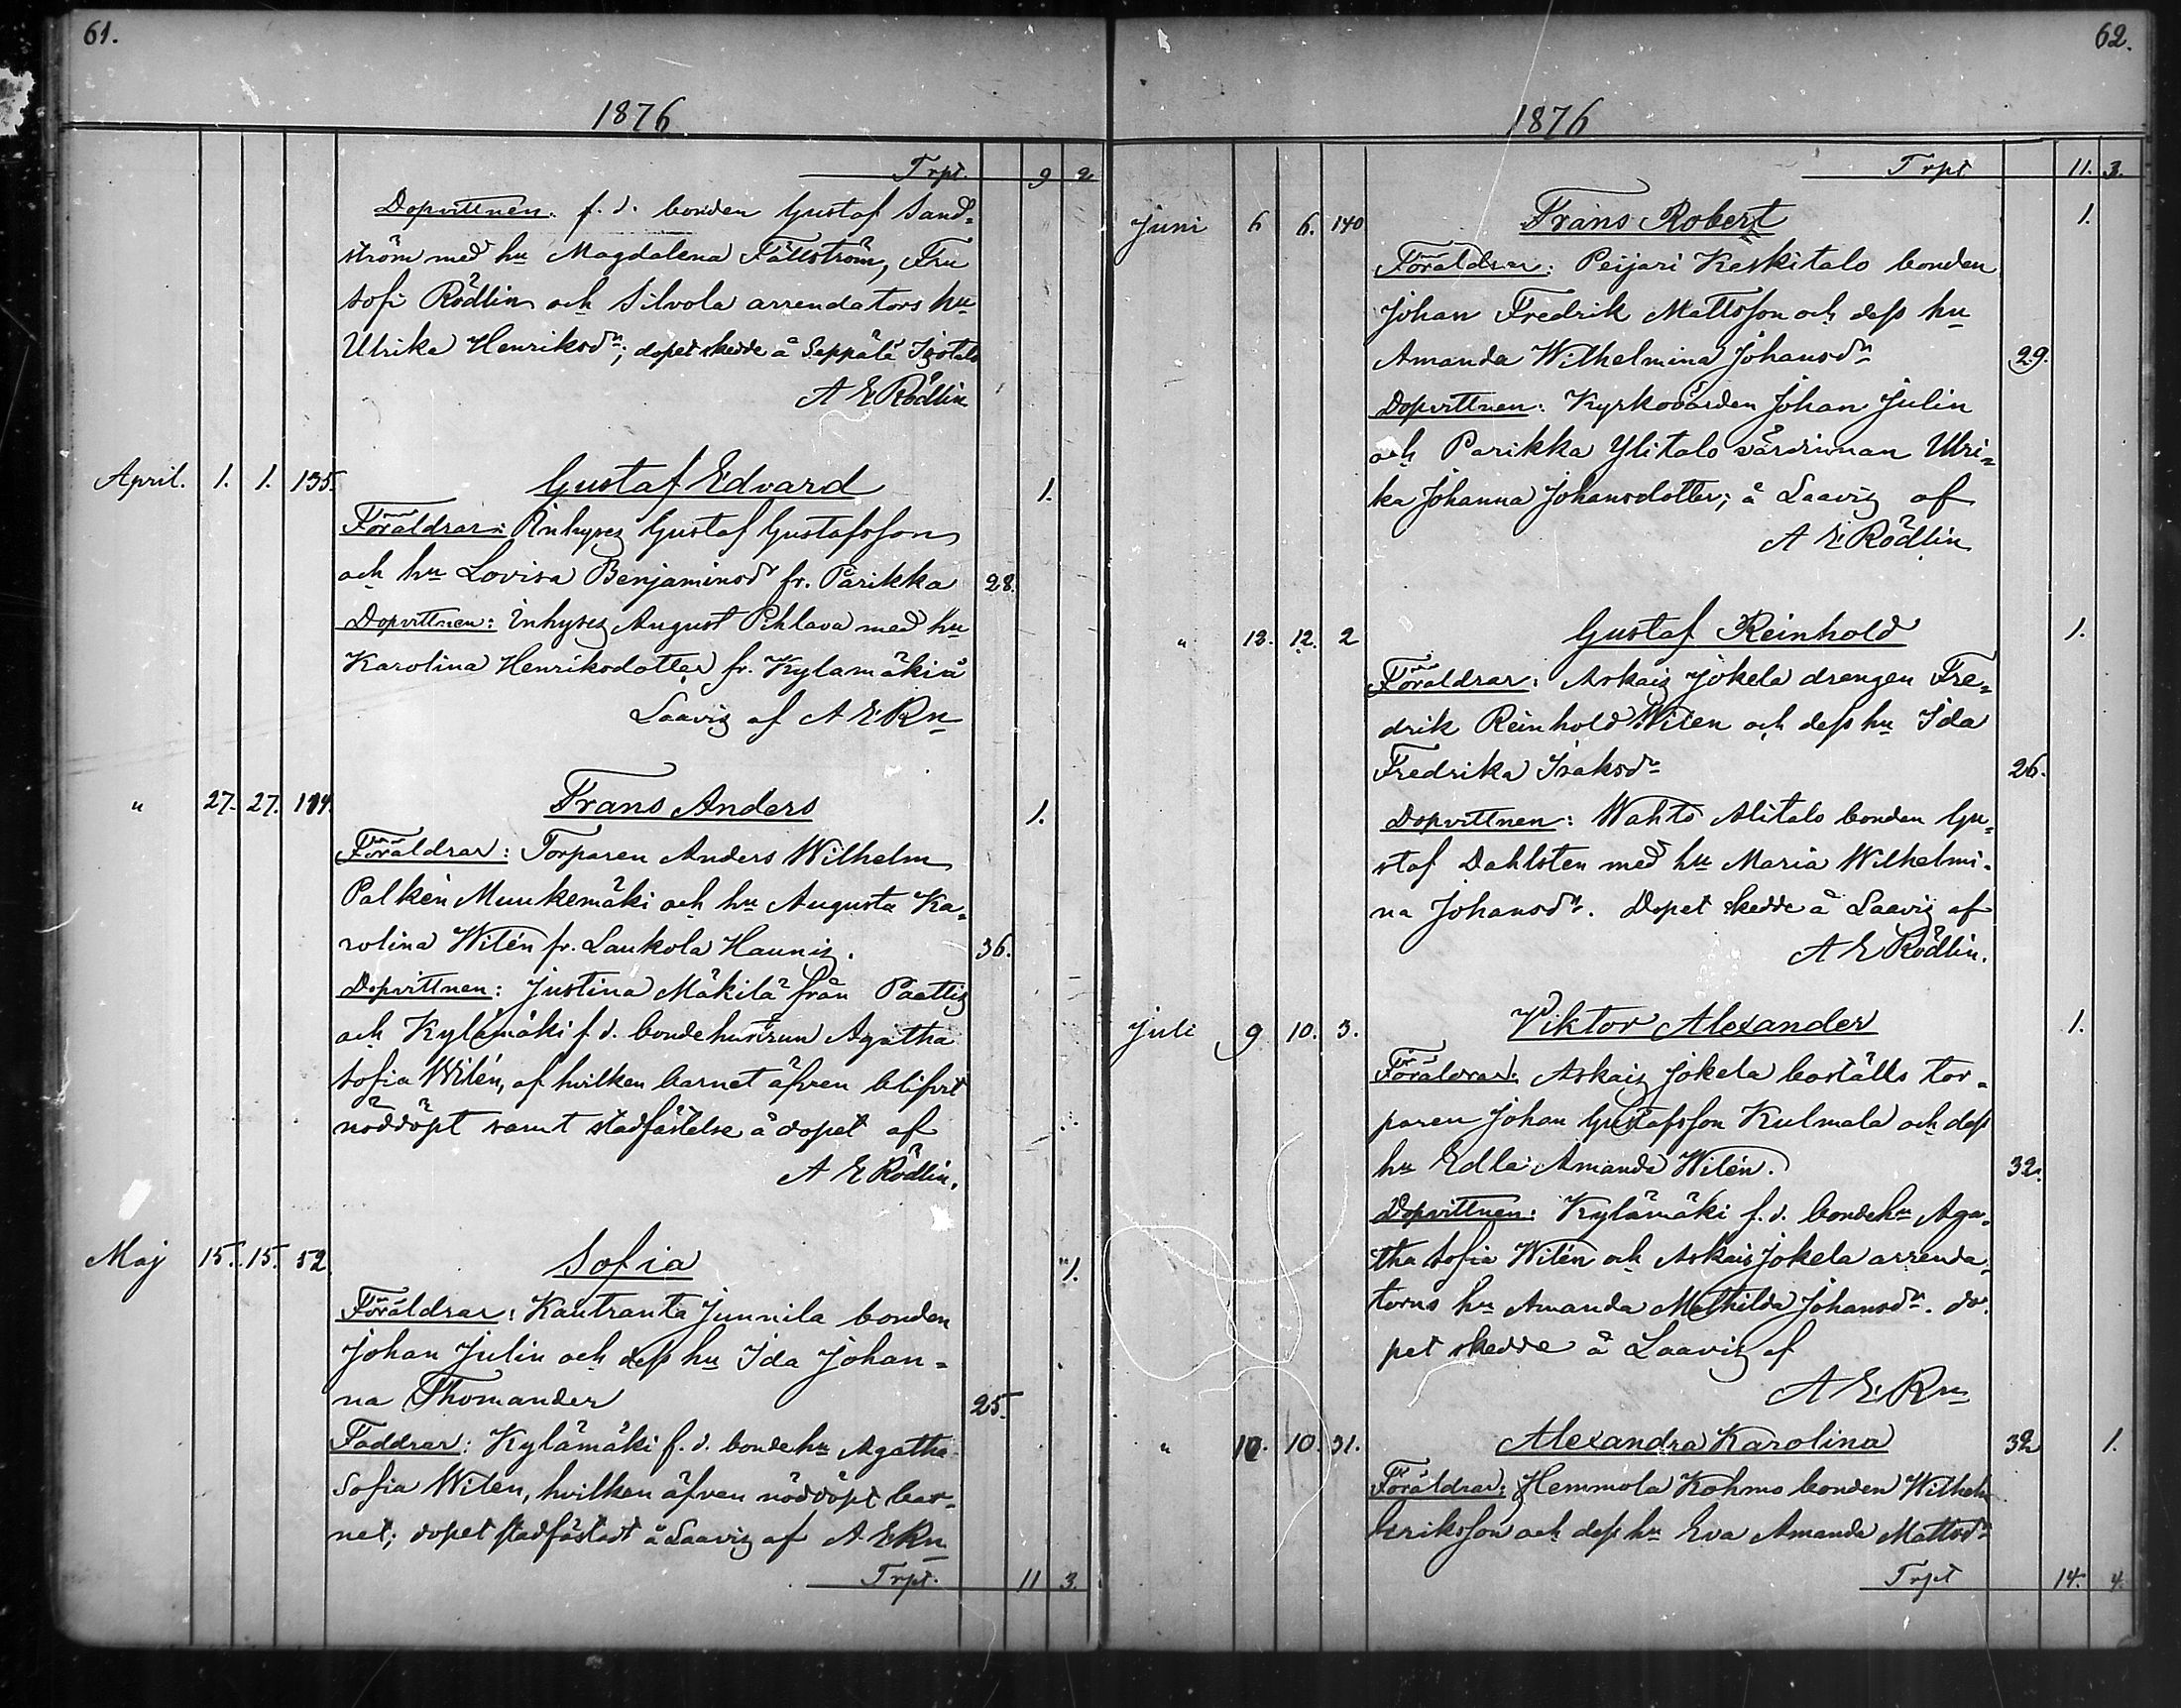 61.
1876
Trpt. 9 2
Dopvittnen: f. d. bonden Gustaf Sand=
ström med hu Magdalena Fällström, Fru
Sofi Rödlin och Silvola arrendators hu
Ulrika Henriksdr; dopet skedde å Seppälä
A E Rödlin
April. 1. 1. 135. Gustaf Edvard 1.
Föräldrar: Inhyses Gustaf Gustafsson
och hu Lovisa Benjaminsdr fr. Parikka 28.
Dopvittnen: Inhyses August Pihlava med hu
Karolina Henriksdotter fr. Kylämäki å
Laavis af A E Rn
" 27. 27. 184. Frans Anders 1.
Föräldrar: Torparen Anders Wilhelm
Palkén Muukemäki och hu Augusta Ka=
rolina Wilén fr. Laukola Haunis. 36.
Dopvittnen: Justina Mäkilä från Paattis
och Kylämäki f. d. bondehustrun Agatha
Sofia Wilén, af hvilken barnet äfven blifvit
nöddöpt samt stadfästelse å dopet af
A E Rödlin.
Maj 15. 15. 52. Sofia "1.
Föräldrar: Kautranta Junnila bonden
Johan Julin och dess hu Ida Johan=
na Thomander 25.
Faddrar: Kylämäki f. d. bondehu Agatha
Sofia Wilen, hvilken äfven nöddöpt bar=
net; dopet stadfästadt å Laavis af A E Rn
Trpt. 11 3.
62.
1876
Trpt 11. 3.
Juni 6 6. 140 Frans Robert 1.
Föräldrar: Peijari Keskitalo bonden
Johan Fredrik Mattsson och dess hu
Amanda Wilhelmina Johansdr 29.
Dopvittnen: Kyrkovärden Johan Julin
och Parikka Ylitalo värdinnan Ulri=
ka Johanna Johansdotter; å Laavis af
A E Rödlin
" 12. 12. 2 Gustaf Reinhold 1.
Föräldrar: Askais Jokela drengen Fre=
drik Reinhold Wilen och dess hu Ida
Fredrika Isaksdr 26.
Dopvittnen: Wahto Alitalo bonden Gu=
staf Dahlsten med hu Maria Wilhelmi=
na Johansdr. Dopet skedde å Laavis af
A E Rödlin.
Juli 9 10. 3. Viktor Alexander 1.
Föräldrar: Askais Jokela boställs tor=
paren Johan Gustafsson Kulmala och dess
hu Edla Amanda Wilén. 32.
Dopvittnen: Kylämäki f. d. bondehu Aga=
tha Sofia Wilén och Askais Jokela arrenda=
torns hu Amanda Mathilda Johansdr. do=
pet skedde å Laavis af
A E Rn
" 10. 10. 31. Alexandra Karolina 32 1.
Föräldrar: Hemmola Kohmo bonden Wilhelm
Eriksson och dess hu Eva Amanda Mattsdr
Trpt 14. 4.